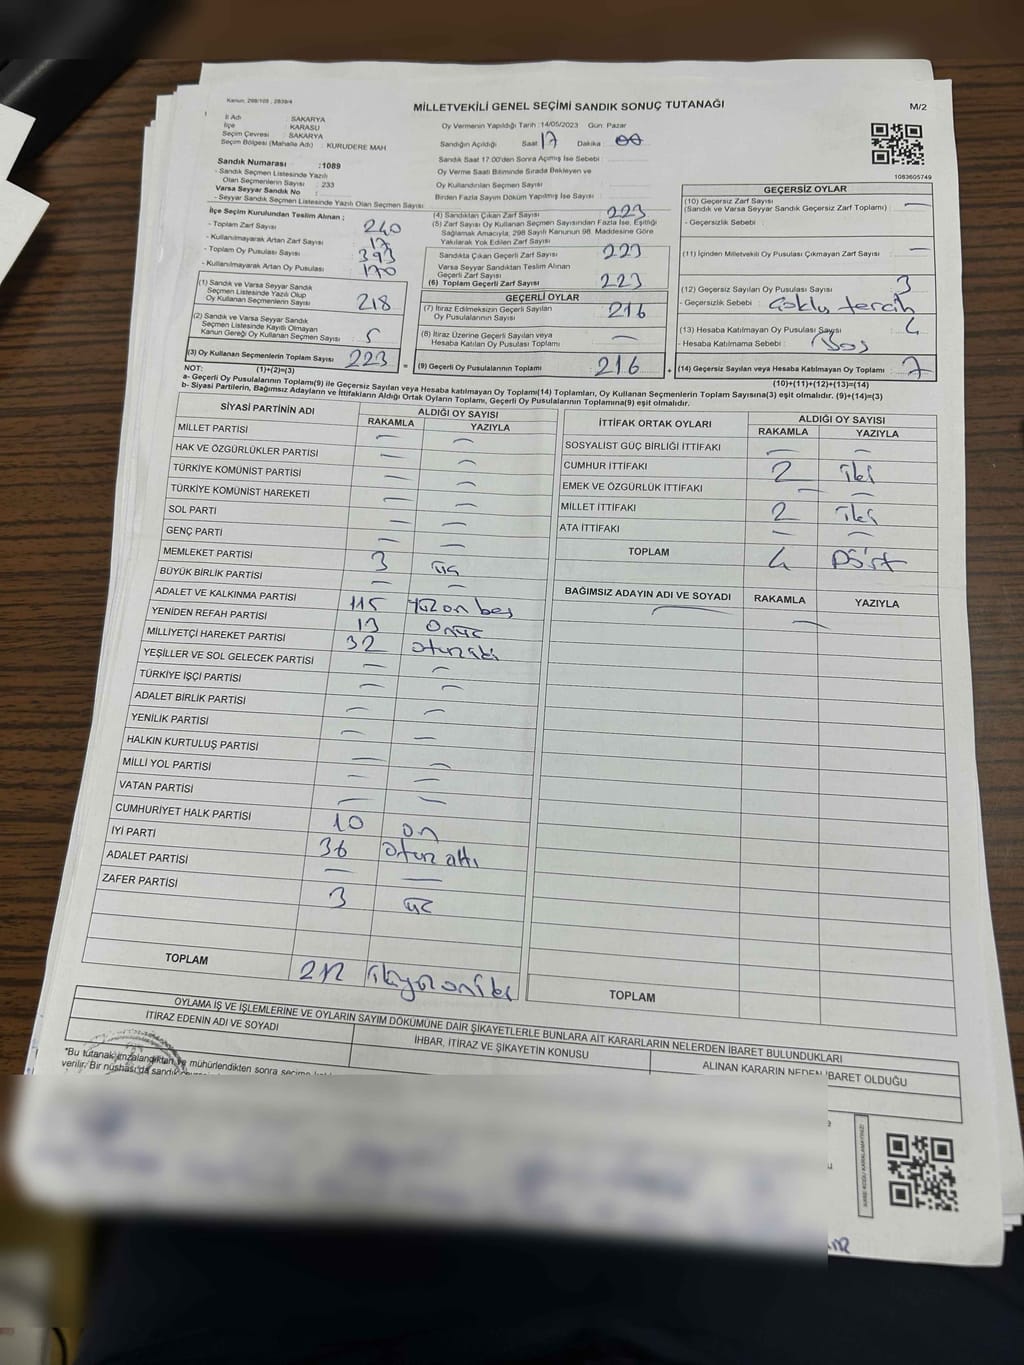 Kanun, 298/105 , 2839/4
MİLLETVEKİLİ GENEL SEÇİMİ SANDIK SONUÇ TUTANAĞI
M/2
İl Adı : SAKARYA
İlçe : KARASU
Seçim Çevresi : SAKARYA
Seçim Bölgesi (Mahalle Adı) : KURUDERE MAH.
Sandık Numarası : 1089
- Sandık Seçmen Listesinde Yazılı
Olan Seçmenlerin Sayısı : 233
Varsa Seyyar Sandık No :
- Seyyar Sandık Seçmen Listesinde Yazılı
Olan Seçmen Sayısı
Oy Vermenin Yapıldığı Tarih :14/05/2023 Gün: Pazar
Sandığın Açıldığı Saat 17 Dakika 00
Sandık Saat 17:00'den Sonra Açılmış İse Sebebi :
Oy Verme Saati Bitiminde Sırada Bekleyen ve
Oy Kullandırılan Seçmen Sayısı :
Birden Fazla Sayım Döküm Yapılmış İse Sayısı :
1083605749
İlçe Seçim Kurulundan Teslim Alınan ;
- Toplam Zarf Sayısı : 240
- Kullanılmayarak Artan Zarf Sayısı : 17
- Toplam Oy Pusulası Sayısı : 393
- Kullanılmayarak Artan Oy Pusulası : 170
(1) Sandık ve Varsa Seyyar Sandık
Seçmen Listesinde Yazılı Olup
Oy Kullanan Seçmenlerin Sayısı : 218
(2) Sandık ve Varsa Seyyar Sandık
Seçmen Listesinde Kayıtlı Olmayan
Kanun Gereği Oy Kullanan Seçmen Sayısı : 5
(3) Oy Kullanan Seçmenlerin Toplam Sayısı 223
(4) Sandıktan Çıkan Zarf Sayısı : 223
(5) Zarf Sayısı Oy Kullanan Seçmen Sayısından Fazla İse, Eşitliği
Sağlamak Amacıyla, 298 Sayılı Kanunun 98. Maddesine Göre
Yakılarak Yok Edilen Zarf Sayısı :
Sandıkta Çıkan Geçerli Zarf Sayısı 223
Varsa Seyyar Sandıktan Teslim Alınan
Geçerli Zarf Sayısı
(6) Toplam Geçerli Zarf Sayısı : 223
GEÇERLİ OYLAR
(7) İtiraz Edilmeksizin Geçerli Sayılan
Oy Pusulalarının Sayısı : 216
(8) İtiraz Üzerine Geçerli Sayılan veya
Hesaba Katılan Oy Pusulası Toplamı : —
= (9) Geçerli Oy Pusulalarının Toplamı : 216
GEÇERSİZ OYLAR
(10) Geçersiz Zarf Sayısı
(Sandık ve Varsa Seyyar Sandık Geçersiz Zarf Toplamı) : —
- Geçersizlik Sebebi :
(11) İçinden Milletvekili Oy Pusulası Çıkmayan Zarf Sayısı : —
(12) Geçersiz Sayılan Oy Pusulası Sayısı : 3
- Geçersizlik Sebebi : Çoklu tercih
(13) Hesaba Katılmayan Oy Pusulası Sayısı : 4
- Hesaba Katılmama Sebebi : Boş
+ (14) Geçersiz Sayılan veya Hesaba Katılmayan Oy Toplamı : 7
NOT: (1)+(2)=(3)
(10)+(11)+(12)+(13)=(14)
a- Geçerli Oy Pusulalarının Toplamı(9) ile Geçersiz Sayılan veya Hesaba katılmayan Oy Toplamı(14) Toplamları, Oy Kullanan Seçmenlerin Toplam Sayısına(3) eşit olmalıdır. (9)+(14)=(3)
b- Siyasi Partilerin, Bağımsız Adayların ve İttifakların Aldığı Ortak Oyların Toplamı, Geçerli Oy Pusulalarının Toplamına(9) eşit olmalıdır.
SİYASİ PARTİNİN ADI ALDIĞI OY SAYISI
RAKAMLA YAZIYLA
MİLLET PARTİSİ — —
HAK VE ÖZGÜRLÜKLER PARTİSİ — —
TÜRKİYE KOMÜNİST PARTİSİ — —
TÜRKİYE KOMÜNİST HAREKETİ — —
SOL PARTİ — —
GENÇ PARTİ — —
MEMLEKET PARTİSİ 3 üç
BÜYÜK BİRLİK PARTİSİ — —
ADALET VE KALKINMA PARTİSİ 115 yüz on beş
YENİDEN REFAH PARTİSİ 13 onüç
MİLLİYETÇİ HAREKET PARTİSİ 32 otuziki
YEŞİLLER VE SOL GELECEK PARTİSİ — —
TÜRKİYE İŞÇİ PARTİSİ — —
ADALET BİRLİK PARTİSİ — —
YENİLİK PARTİSİ — —
HALKIN KURTULUŞ PARTİSİ — —
MİLLİ YOL PARTİSİ — —
VATAN PARTİSİ — —
CUMHURİYET HALK PARTİSİ 10 on
İYİ PARTİ 36 otuz altı
ADALET PARTİSİ — —
ZAFER PARTİSİ 3 üç
TOPLAM 212 ikiyüzoniki
İTTİFAK ORTAK OYLARI ALDIĞI OY SAYISI
RAKAMLA YAZIYLA
SOSYALİST GÜÇ BİRLİĞİ İTTİFAKI — —
CUMHUR İTTİFAKI 2 iki
EMEK VE ÖZGÜRLÜK İTTİFAKI — —
MİLLET İTTİFAKI 2 iki
ATA İTTİFAKI — —
TOPLAM 4 Dört
BAĞIMSIZ ADAYIN ADI VE SOYADI RAKAMLA YAZIYLA
— —
TOPLAM
OYLAMA İŞ VE İŞLEMLERİNE VE OYLARIN SAYIM DÖKÜMÜNE DAİR ŞİKAYETLERLE BUNLARA AİT KARARLARIN NELERDEN İBARET BULUNDUKLARI
İTİRAZ EDENİN ADI VE SOYADI İHBAR, İTİRAZ VE ŞİKAYETİN KONUSU ALINAN KARARIN NEDEN İBARET OLDUĞU
*Bu tutanak imzalandıktan ve mühürlendikten sonra seçime
verilir. Bir nüshası da sandık